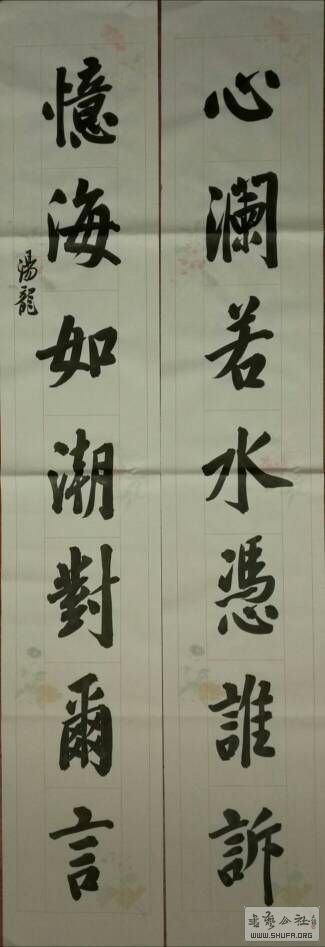 心瀾若水憑誰訴
憶海如潮對爾言
湯龍
WWW.SHUFA.ORG